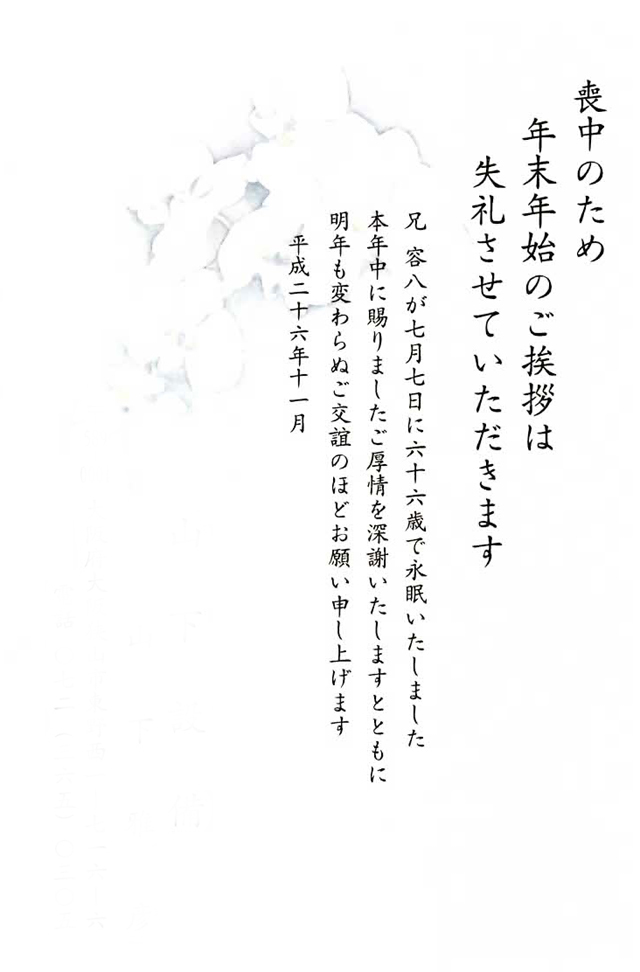 喪中のため
年末年始のご挨拶は
失礼させていただきます
兄 容八が七月七日に六十六歳で永眠いたしました
本年中に賜りましたご厚情を深謝いたしますとともに
明年も変わらぬご交誼のほどお願い申し上げます
平成二十六年十一月